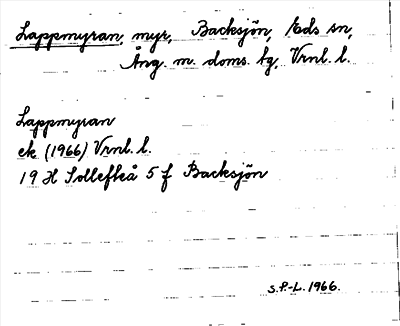 Lappmyran, myr, Backsjön, Eds sn,
Ång. m. doms. lg. Vrnl. l.
Lappmyran
ek (1966) Vrnl. l.
19 H Sollefteå 5 f Backsjön
S.P.-L. 1966.